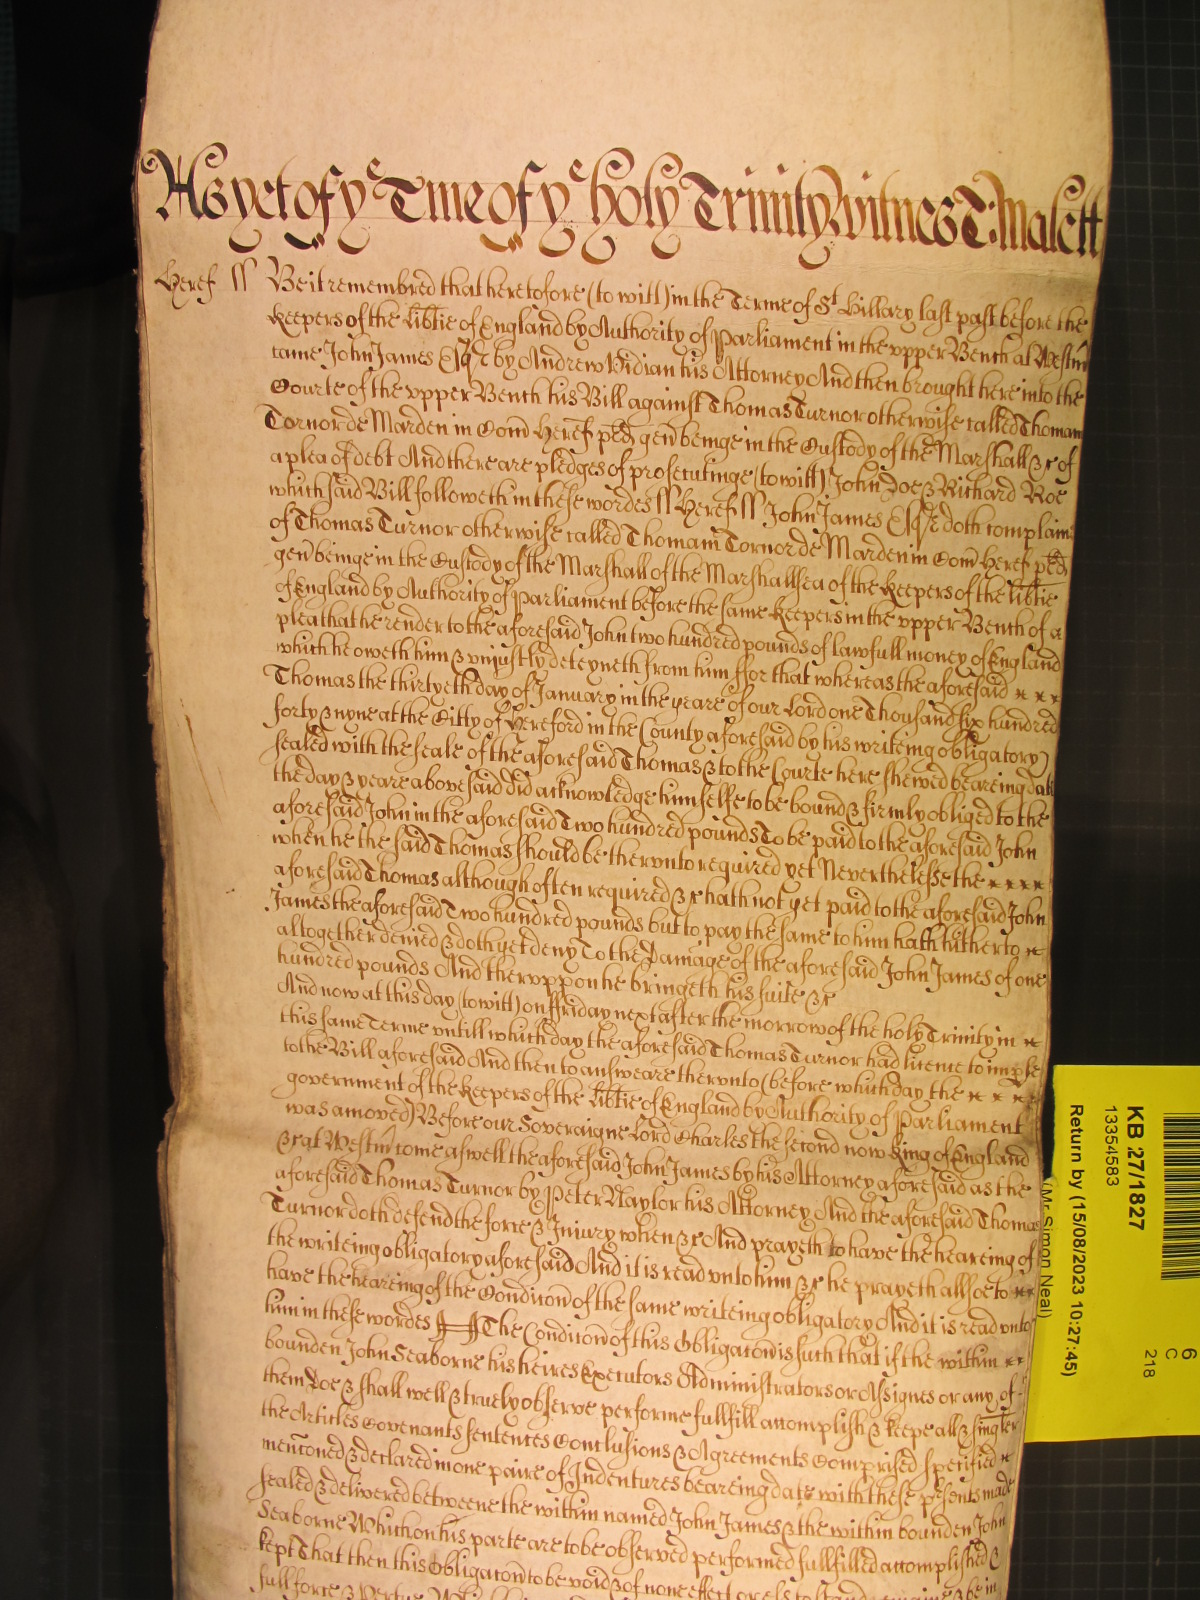 As yet of yᵉ Tme of yᵉ holy Trinity witnes T: Malett
Heref ss Be it remembred that heretofore (to witt) in the Terme of Sᵗ Hillary last past before the
keepers of the libtie of England by Authority of Parliament in the upper Bench at Westm
came John James Esqr by Andrew Vidian his Attorney And then brought here into the
Courte of the upper Bench his Bill against Thomas Turnor otherwise called Thomam
Tornor de Marden in Com Heref pred gen beinge in the Custody of the Marshall &c of
a plea of debt And there are pledges of prosecutinge (to witt) John Doe & Richard Roe
which said Bill followeth in these wordes ss Heref ss John James Esqr doth complaine
of Thomas Turnor otherwise called Thomam Tornor de Marden in Com Heref pred
gen beinge in the Custody of the Marshall of the Marshallsea of the keepers of the libtie
of England by Authority of Parliament before the same keepers in the upper Bench of a
plea that he render to the aforesaid John two hundred pounds of lawfull money of England
which he oweth him & unjustly deteyneth from him ffor that whereas the aforesaid
Thomas the thirtyeth day of January in the yeare of our Lord one Thousand six hundred
forty & nyne at the Citty of Hereford in the County aforesaid by his writeing obligatory
sealed with the seale of the aforesaid Thomas & to the Courte here shewed beareing date
the day & yeare abovesaid did acknowledge himselfe to be bound & firmly obliged to the
aforesaid John in the aforesaid Two hundred pounds To be paid to the aforesaid John
when he the said Thomas should be therunto required yet Neverthelesse the
aforesaid Thomas although often required &c hath not yet paid to the aforesaid John
James the aforesaid Two hundred pounds but to pay the same to him hath hitherto
altogether denied & doth yet deny To the Damage of the aforesaid John James of one
hundred pounds And theruppon he bringeth his suite &c
And now at this day (to witt) on ffriday next after the morrow of the holy Trinity in
this same Terme untill which day the aforesaid Thomas Turnor had licence to imple
to the Bill aforesaid And then to answeare therunto (before which day the
government of the keepers of the libtie of England by Authority of Parliament
was amoved) Before our Soveraigne Lord Charles the second now King of England
&c at Westm come aswell the aforesaid John James by his Attorney aforesaid as the
aforesaid Thomas Turnor by Peter Naylor his Attorney And the aforesaid Thomas
Turnor doth defend the force & Injury when &c And prayeth to have the heareing of
the writeing obligatory aforesaid And it is read unto him &c he prayeth allsoe to
have the heareing of the Condicon of the same writeing obligatory And it is read unto
him in these wordes The Condicon of this Obligacon is such that if the within
bounden John Seaborne his heires Executors Administrators or Assignes or any of
them doe & shall well & truely observe performe fullfill accomplish & keepe all & singler
the Articles Covenants sentences Conclusions & Agreements Comprised specified
menconed & declared in one paire of Indentures beareing date with these psents made
sealed & delivered betweene the within named John James & the within bounden John
Seaborne Which on his parte are to be observed performed fullfilled accomplished &
kept That then this Obligacon to be void & of none effect or els to stand remaine & be in
full force & vertue
KB 27/1827
13354583
Return by (15/08/2023 10:27:45)
(Mr Simon Neal)
6
C
218